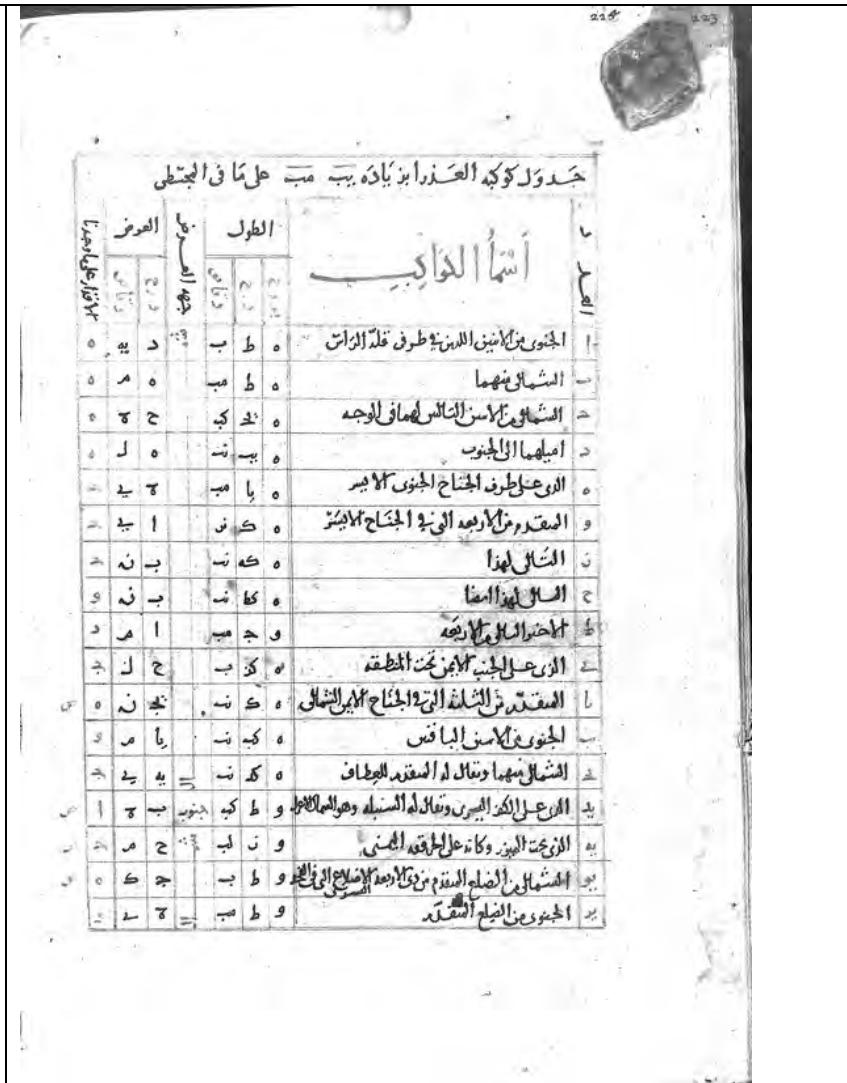 224 223
جدول كوكبه العذرا بزياده يب مب على ما فى المجسطى
العدد اسما الكواكب الطول جهه العرض العرض الاقدار على ما وجدنا
بروج درج دقايق درج دقايق
ا الجنوبى من الاثنين اللذين فى طرف قله الراس ه ط ب د يه ه
ب الشمالى منهما ه ط مب ه م ه
ج الشمالى من الاثنين التاليين لهما فى الوجه ه يج كب ح ه ه
د اميلهما الى الجنوب ه يب نب ه ل ه
ه الذى على طرف الجناح الجنوبى الايسر ه يا مب ه ى ج
و المتقدم من الاربعه التى فى الجناح الايسر ه ك نز ا ى ج
ز التالى لهذا ه كه نب ب ن ج
ح التالى لهذا ايضا ه كط نب ب ن و
ط الاخير التالى من الاربعه و ج مب ا م د
ى الذى على الجنب الايمن تحت المنطقه ه كز ب ح ل ج
يا المتقدم من الثلثه التى فى الجناح الايمن الشمالى ه ك نب يج ن ه
يب الجنوبى من الاثنين الباقيين ه كب نب يا م و
يج الشمالى منهما ويقال له المتقدم للقطاف ه كد نب يه ى ج
يد الذى على الكف اليسرى ويقال له السنبله وهو السماك الاعزل و ط كب جنوب ب ه ا
يه الذى تحت الميزر وكانه على الحرقفه اليمنى و ز لب ح م ج
يو الشمالى من الضلع المتقدم من ذى الاربعه الاضلاع التى فى الفخذ اليسرى و ط ب ج ك ه
يز الجنوبى من الضلع المتقدم و ط مب ه ى